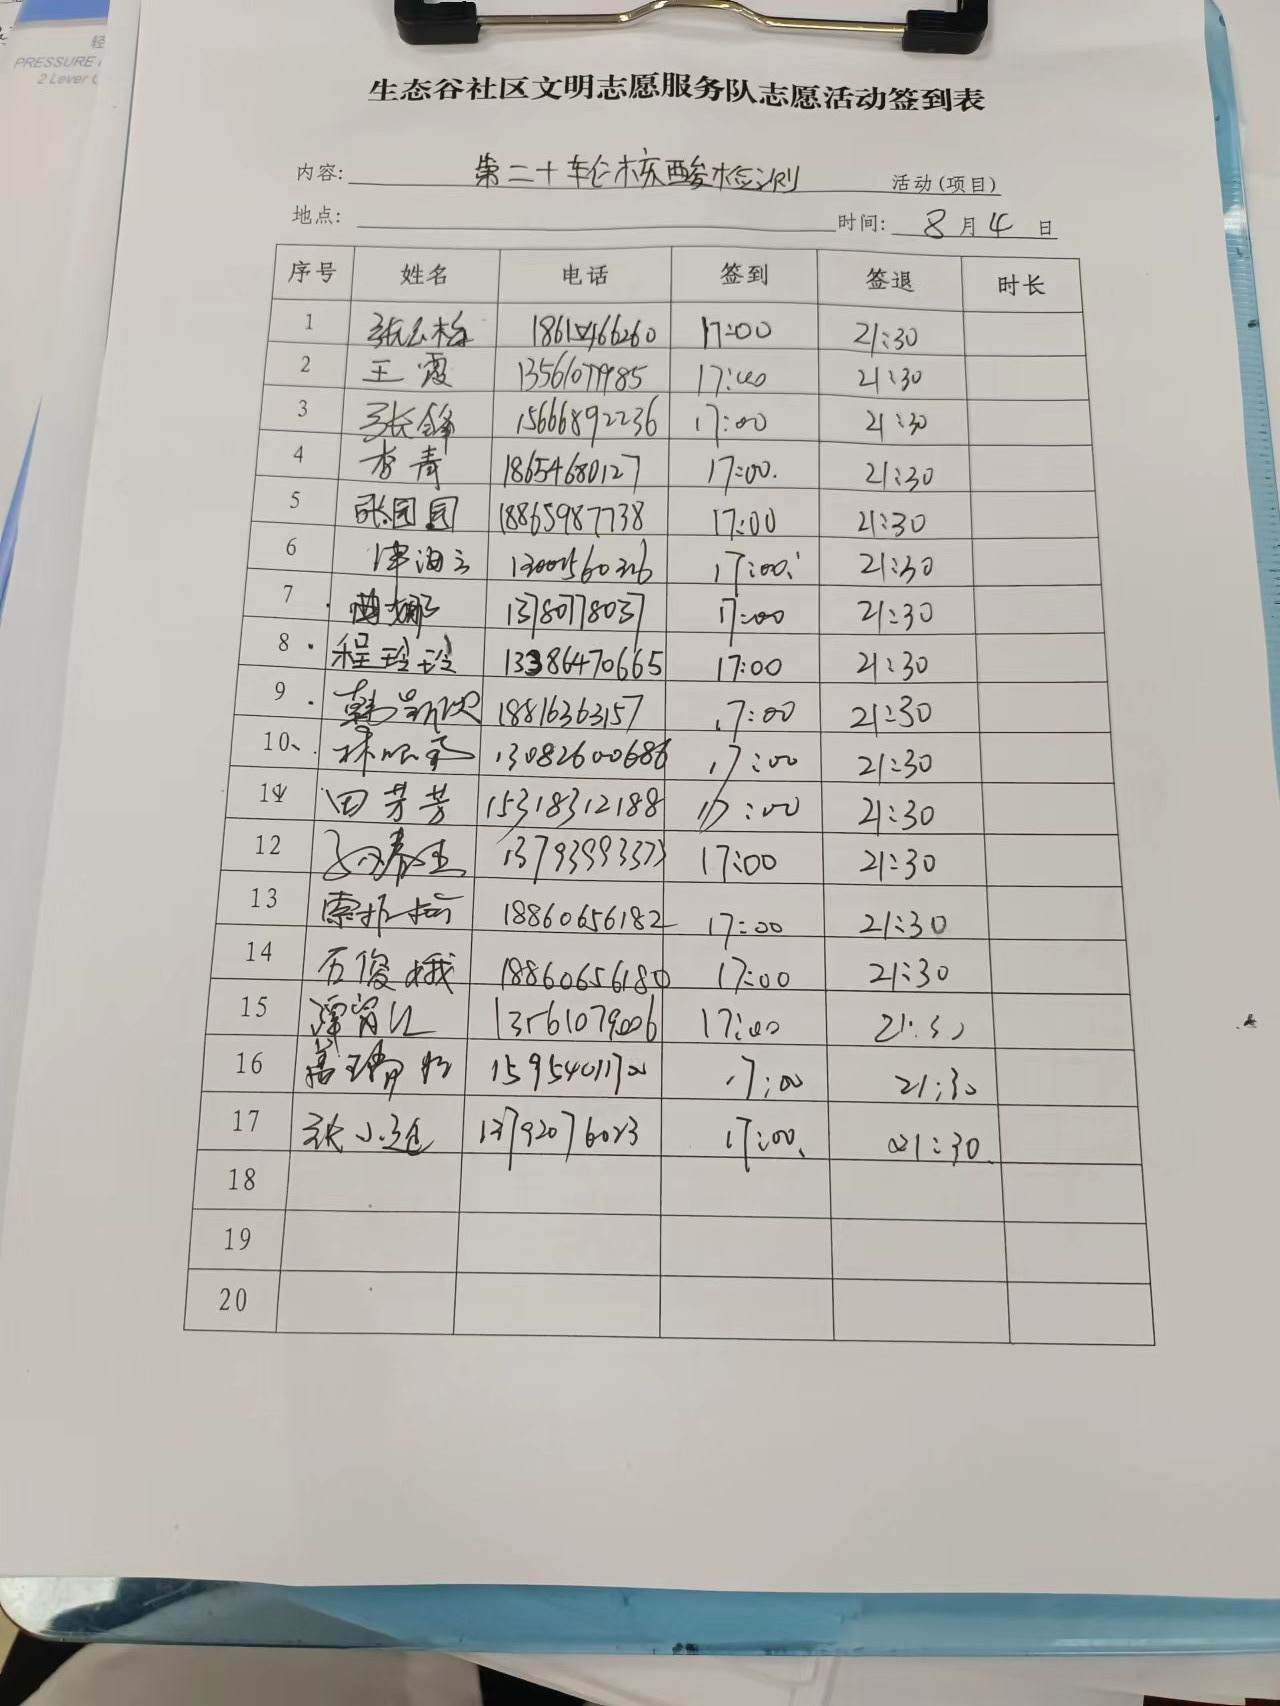 PRESSURE
2 Lever
生态谷社区文明志愿服务队志愿活动签到表
内容: 第二十轮核酸检测 活动(项目)
地点: 时间: 8月4日
序号 姓名 电话 签到 签退 时长
1 17:00 21:30
2 王霞 17:00 21:30
3 张锋 15666892236 17:00 21:30
4 李青 18654680127 17:00. 21:30
5 张园园 18865987738 17:00 21:30
6 17:00 21:30
7 13780778037 17:00 21:30
8 程玲玲 13386470665 17:00 21:30
9 18816363157 17:00 21:30
10 13082600686 17:00 21:30
11 田芳芳 15318312188 17:00 21:30
12 17:00 21:30
13 18860656182 17:00 21:30
14 石俊娥 18860656180 17:00 21:30
15 13561079006 17:00 21:30
16 17:00 21:30
17 17:00 21:30
18
19
20